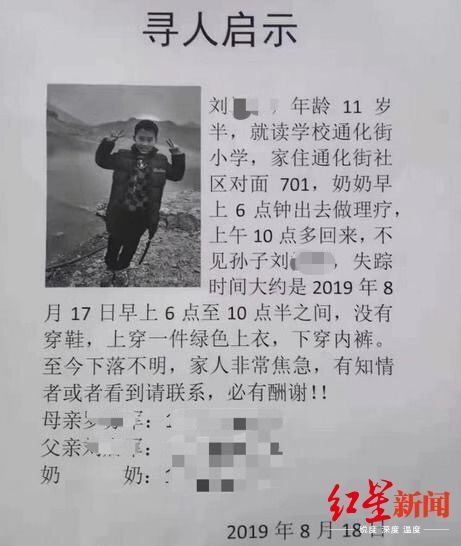 寻人启示
刘 ，年龄 11 岁
半，就读学校通化街
小学，家住通化街社
区对面 701，奶奶早
上 6 点钟出去做理疗，
上午 10 点多回来，不
见孙子刘 ，失踪
时间大约是 2019 年 8
月 17 日早上 6 点至 10 点半之间，没有
穿鞋，上穿一件绿色上衣，下穿内裤。
至今下落不明，家人非常焦急，有知情
者或者看到请联系，必有酬谢!!
母亲 ：1
父亲刘 ：
奶 奶：1
红星新闻
锐度 深度 温度
2019 年 8 月 18 日